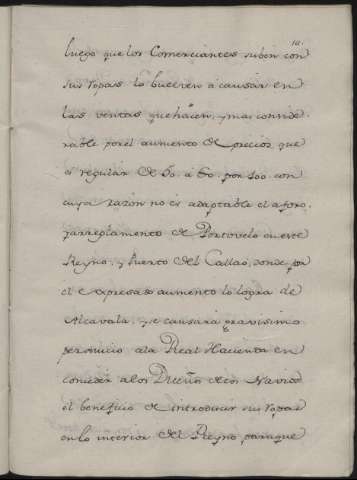 10.
luego que los Comerciantes suben con
sus ropas lo buelven a causar en
las ventas que hacen, y mas conside
rable por el aumento de precios que
es regular de 50. a 60. por 100. con
cuya razón no es adaptable el aforo,
y arreglamento de Portovelo en este
Reyno, y Puerto del Callao, donde por
el expresado aumento lo logra de
Alcavala, y se causaria gravisimo
perjuicio a la Real Hacienda en
conceder a los Dueños de los Navios
el beneficio de introducir sus ropas
en lo interior del Reyno para que